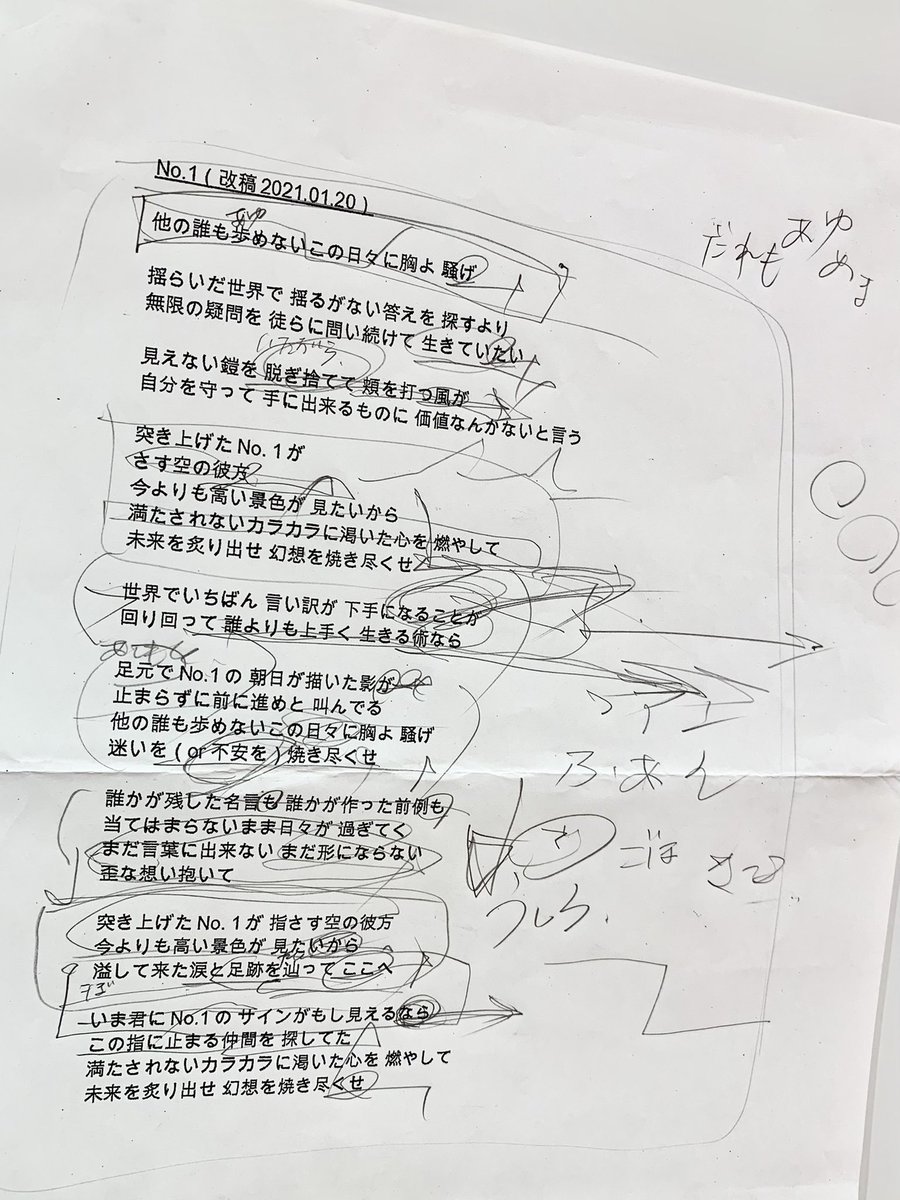 No.1 ( 改稿 2021.01.20 )
だれもあゆめま
あゆ
他の誰も歩めないこの日々に胸よ 騒げ
揺らいだ世界で 揺るがない答えを 探すより
無限の疑問を 徒らに問い続けて 生きていたい
見えない鎧を 脱ぎ捨てて 頬を打つ風が
自分を守って 手に出来るものに 価値なんかないと言う
突き上げた No. 1 が
さす空の彼方
今よりも高い景色が 見たいから
満たされないカラカラに渇いた心を 燃やして
未来を炙り出せ 幻想を焼き尽くせ
世界でいちばん 言い訳が 下手になることが
回り回って 誰よりも上手く 生きる術なら
足元でNo.1の 朝日が描いた影が
止まらずに前に進めと 叫んでる
他の誰も歩めないこの日々に胸よ 騒げ
迷いを ( or 不安を ) 焼き尽くせ
ふあん
誰かが残した名言も 誰かが作った前例も
当てはまらないまま日々が 過ぎてく
まだ言葉に出来ない まだ形にならない
歪な想い抱いて
突き上げた No. 1 が 指さす空の彼方
今よりも高い景色が 見たいから
溢して来た涙と足跡を辿って ここへ
いま君に No.1 の ザインがもし見えるなら
この指に止まる仲間を 探してた
満たされないカラカラに渇いた心を 燃やして
未来を炙り出せ 幻想を焼き尽くせ